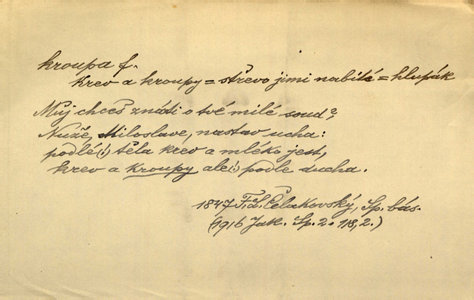 kroupa f.
krev a kroupy = střevo jimi nabité = hlupák
Můj chceš znáti o tvé milé soud?,
Nuže, Miloslave, nastav ucha:
podlé(!) těla krev a mléko jest,
krev a kroupy ale(!) podle ducha.
1847 F. L. Čelakovský, Sp. bás.
(1916 Jak. Sp. 2. 118, 2.)